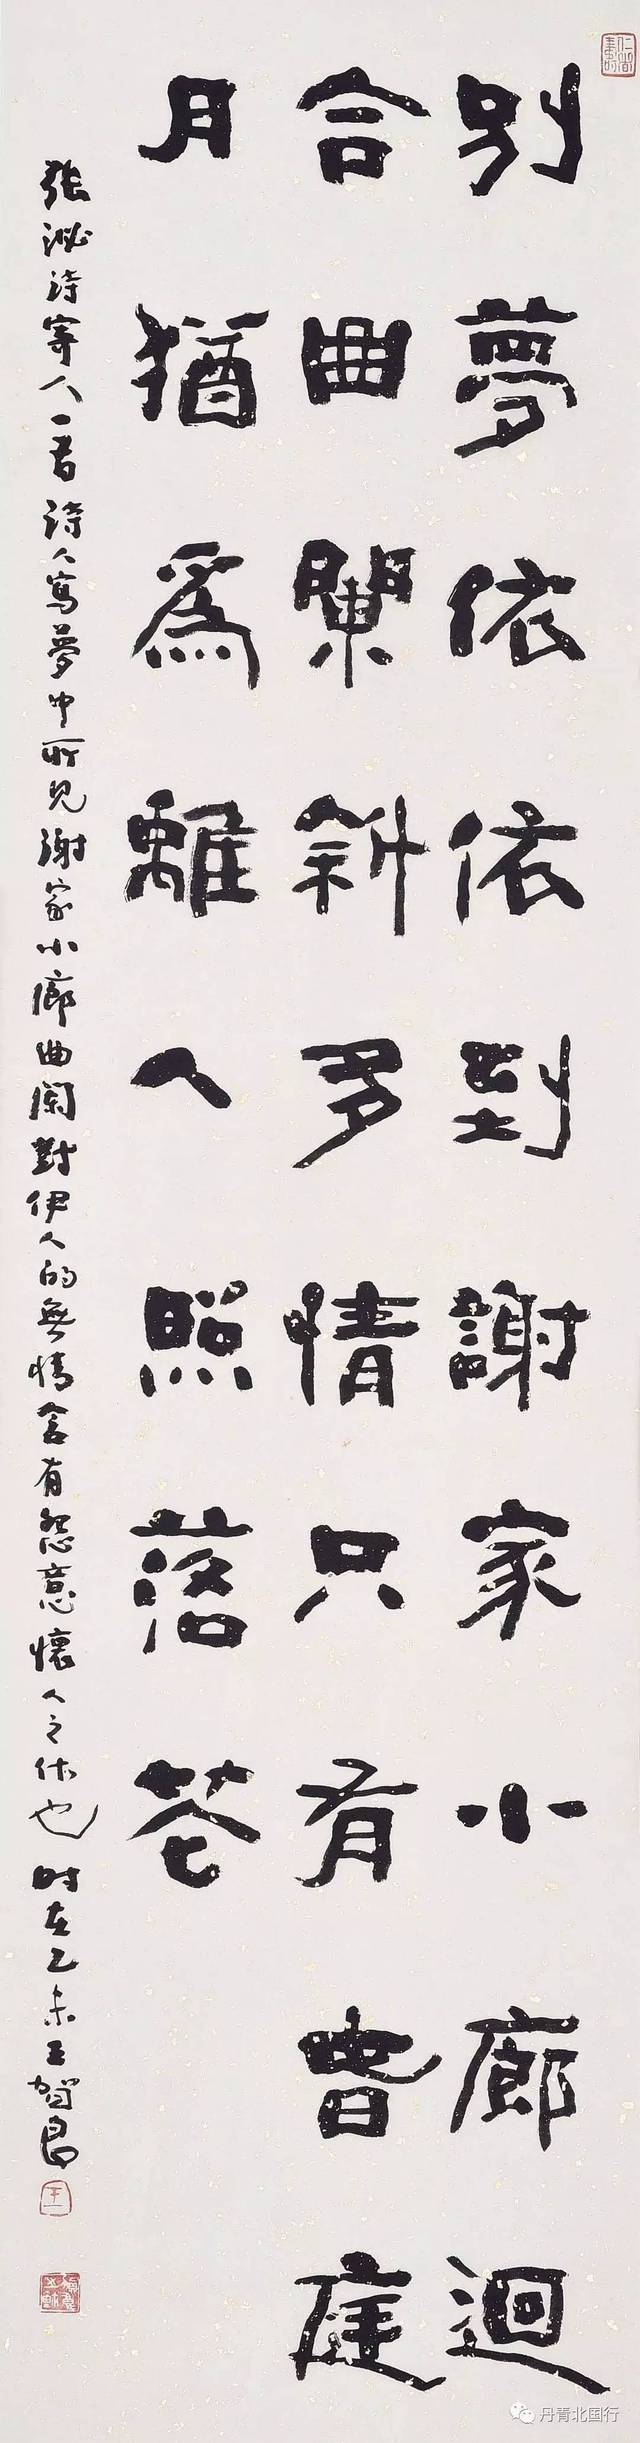 仁者壽
別夢依依到謝家小廊迴
合曲闌斜多情只有春庭
月猶爲離人照落花
張泌詩寄人一首詩人寫夢中所見謝家小廊曲闌對伊人的無情含有怨意懷人之作也時在乙未王賀良
王
丹青北国行